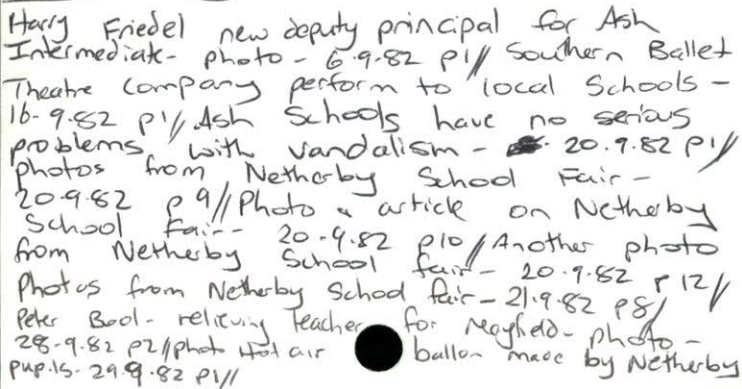 Harry Friedel new deputy principal for Ash
Intermediate - photo - 6.9.82 p1// Southern Ballet
Theatre Company perform to local Schools -
16-9-82 p1// Ash Schools have no serious
problems with vandalism - 20.9.82 p1//
photos from Netherby School Fair -
20.9.82 p9// Photo & article on Netherby
School Fair - 20.9.82 p10// Another photo
from Netherby School fair - 20.9.82 p12//
Photos from Netherby School fair - 21.9.82 p8/
Peter Bool - relieving Teacher for Mayfield - photo -
28-9-82 p2// photo Hot air ballon made by Netherby
pupils - 29.9.82 p1//